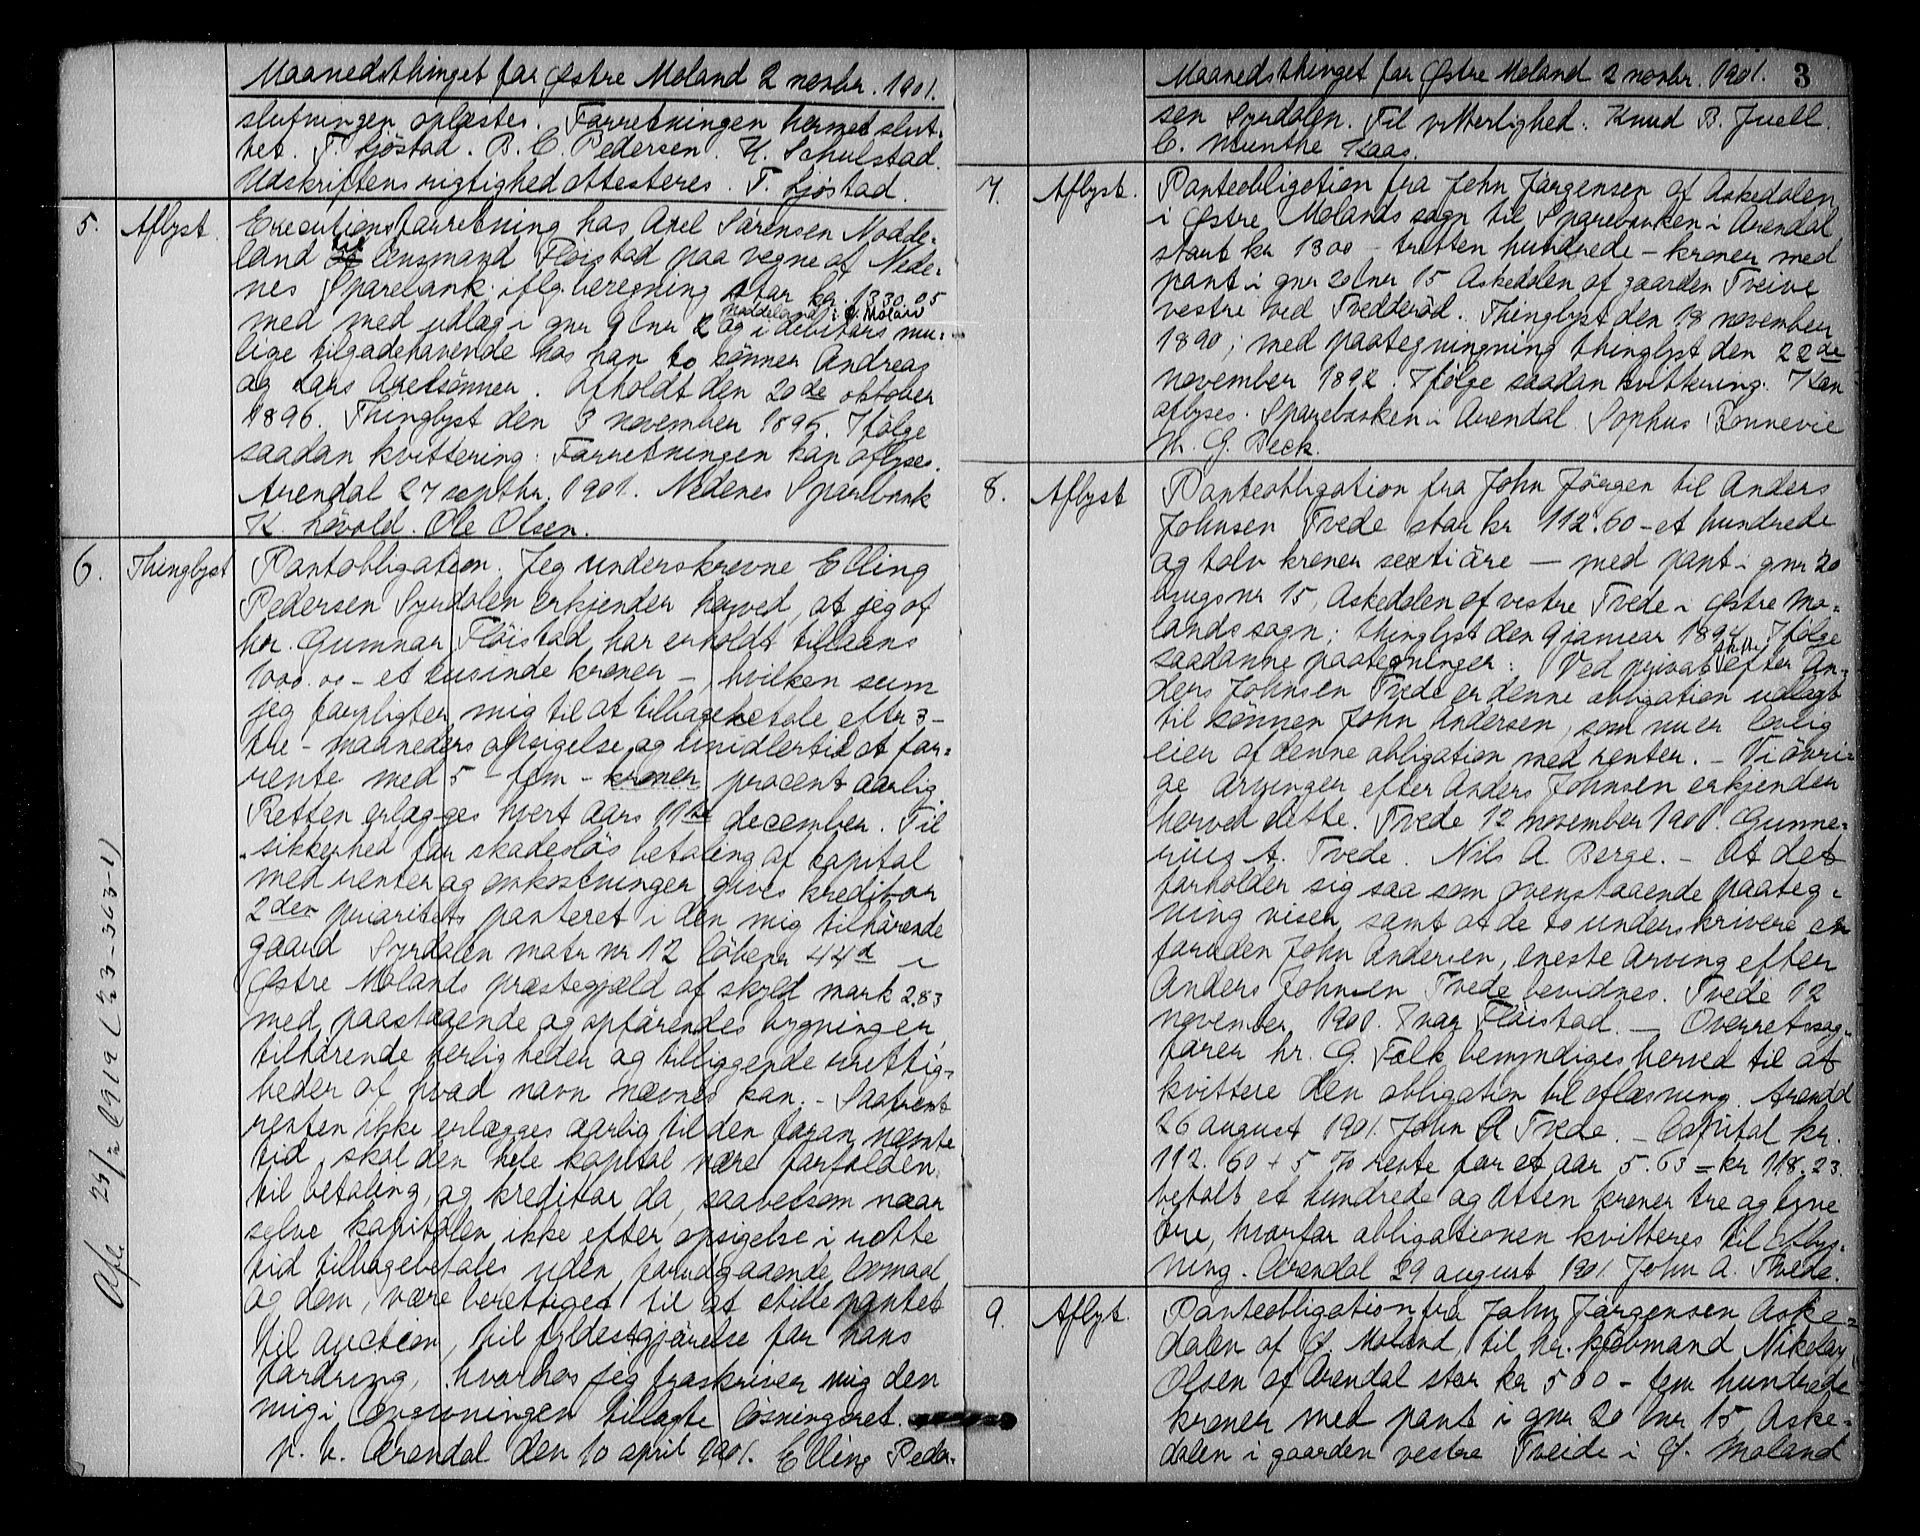 Maanedsthinget for Østre Moland 2 novbr. 1901.
slutningen oplæstes. Forretningen hermed slut-
tet. T. Sjöstad. B. C. Pedersen. H. Schulstad.
Udskriftens rigtighed attesteres. T. Sjöstad.
5. Aflyst. Executionsforretning hos Axel Sörensen Nodde-
land til lensmand Flöistad paa vegne af Nede-
nes Sparebank iflg. beregning stor kr. 1330.05
Noddeland i Ø. Moland
med med udlæg i gnr 9 bnr 2 og i debitors mu-
lige tilgodehavende hos han to sönner Andreas
og Lars Axelsönner. Afholdt den 20de oktober
1896. Thinglyst den 3 november 1896. Ifölge
saadan kvittering: Forretningen kan aflyses.
Arendal 27 septbr. 1901. Nedenes Sparebank
K. Lövold. Ole Olsen.
6. Thinglyst Pantobligation. Jeg underskrevne Elling
Pedersen Syrdalen erkjender herved, at jeg af
hr. Gunnar Flöistad har erholdt tillaans
1000.00 - et tusinde kroner -, hvilken sum
jeg forpligter mig til at tilbagebetale efter 3 -
tre - maaneders opsigelse og imidlertid at for-
rente med 5 - fem - kroner procent aarlig.
Retten erlægges hvert aars 11te december. Til
sikkerhed for skadeslös betaling af kapital
med renter og omkostninger gives kreditor
2den prioritets panteret i den mig tilhörende
gaard Syrdalen matr nr 12 löbenr 44d i
Østre Molands præstegjæld af skyld mark 2.83
med paastaaende og opförendes bygninger,
tilhörende herligheder og tilliggende rettig-
heder af hvad navn nævnes kan. - Saafremt
renten ikke erlægges aarlig til den foran nævnte
tid, skal den hele kapital være forfalden
til betaling, og kreditor da, saavelsom naar
selve kapitalen ikke efter opsigelse i rette
tid tilbagebetales uden forudgaaende lovmaal
og dom, være berettiget til at stille pantet
til auction, til fyldestgjörelse for hans
fordring, hvorhos jeg fraskriver mig den
mig i lovgivningen tillagte lösningsret.
p. t. Arendal den 10 april 1901. Elling Peder-
Afl. 25/2 1919 (23-363-1)
Maanedsthinget for Østre Moland 2 novbr. 1901. 3
sen Syrdalen. Til vitterlighed: Knud B. Juell.
C. Munthe Kaas.
7. Aflyst. Panteobligation fra John Jörgensen af Askedalen
i Østre Molands sogn til Sparebanken i Arendal
stort kr 1300 - tretten hundrede - kroner med
pant i gnr 20 bnr 15 Askedalen af gaarden Tveive
vestre ved Tvedderöd. Thinglyst den 18 november
1890; med paategningning thinglyst den 22de
november 1892. Ifölge saadan kvittering: Kan
aflyses. Sparebanken i Arendal Sophus Bonnevie
Th. G. Beck.
8. Aflyst Panteobligation fra John Jörgen til Anders
Johnsen Tvede stor kr 112.60 - et hundrede
og tolv kroner sexti öre - med pant i gnr 20
brugsnr 15, Askedalen af vestre Tvede i Østre Mo-
lands sogn; thinglyst den 9 januar 1894. Ifölge
skifte
saadanne paategninger: Ved privat efter An-
ders Johnsen Tvede er denne obligation udlagt
til sönnen John Andersen, som nu er lovlig
eier af denne obligation med renter. - Vi övri-
ge arvinger efter Anders Johnsen erkjender
herved dette. Tvede 12 november 1900. Gunne-
rius A. Tvede. Nils A Berge. - At det
forholder sig saa som ovenstaaende paateg-
ning viser, samt at de to underskrivere er
foruden John Andersen, eneste arving efter
Anders Johnsen Tvede bevidnes. Tvede 12
november 1900. Ivar Flöistad. - Overretssag-
förer hr. G. Falk bemyndiges herved til at
kvittere den obligation til aflæsning. Arendal
26 august 1901. John A Tvede. - Capital kr.
112.60 + 5 % rente for et aar 5.63 = kr 118.23
betalt et hundrede og atten kroner tre og tyve
öre, hvorfor obligationen kvitteres til Aflys-
ning. Arendal 29 august 1901. John A. Tvede.
9. Aflyst. Panteobligation fra John Jörgensen Aske-
dalen af Ø. Moland, til hr. kjöbmand Nikolay
Olsen af Arendal stor kr 500 - fem hundrede
kroner med pant i gnr 20 bnr 15 Aske-
dalen i gaarden vestre Tveide i Ø. Moland